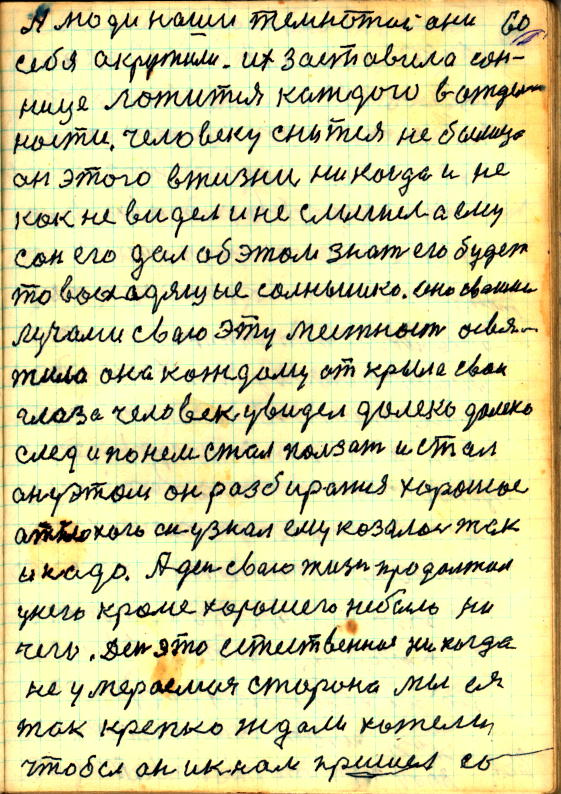 А люди наши темнотой ани 60
себя акружили. их заставила сон-
нице ложится каждого в отделн
ности. человеку снится не былица
он этого вжизни никогда и не
как не видел и не слышел а ему
сон его дал обэтом знат его будет
то восходящые солнышко. оно своими
лучами сваю эту местност освя-
тила она каждому открыла свои
глаза человек увидел далеко далеко
след и понем стал ползат и стал
он уэтом он разбиратися хорошое
атплохого он узнал ему козалос так
и надо. А ден сваю жизн продолжал
унего кроме хорошего небыло ни
чего. Ден это естественная никогда
не умераемая сторона мы ея
так крепко ждали хотели
чтобы он икнам пришел со